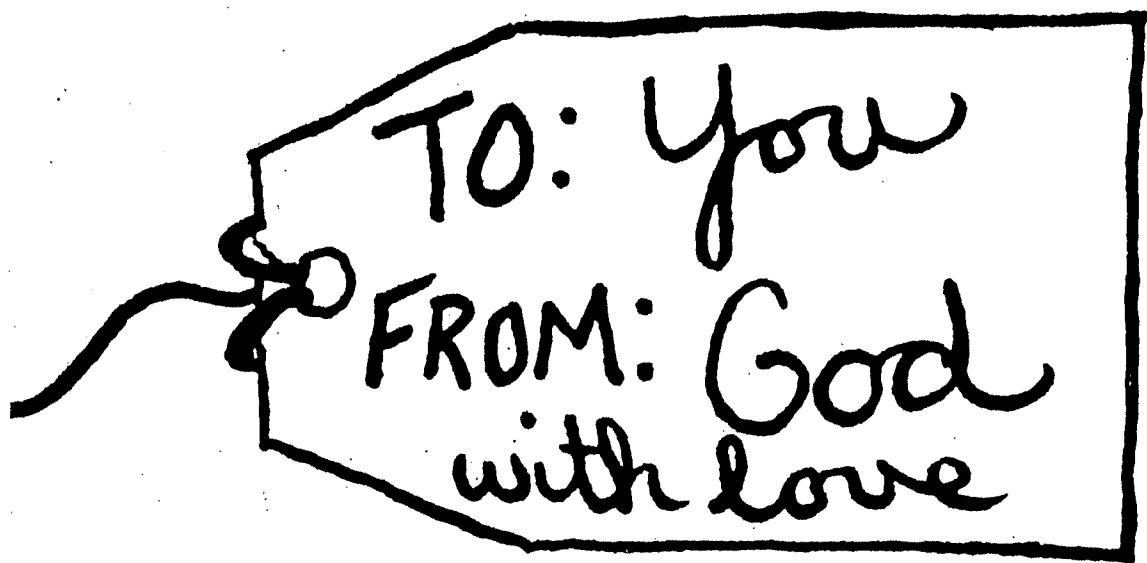 TO: You
FROM: God
with love